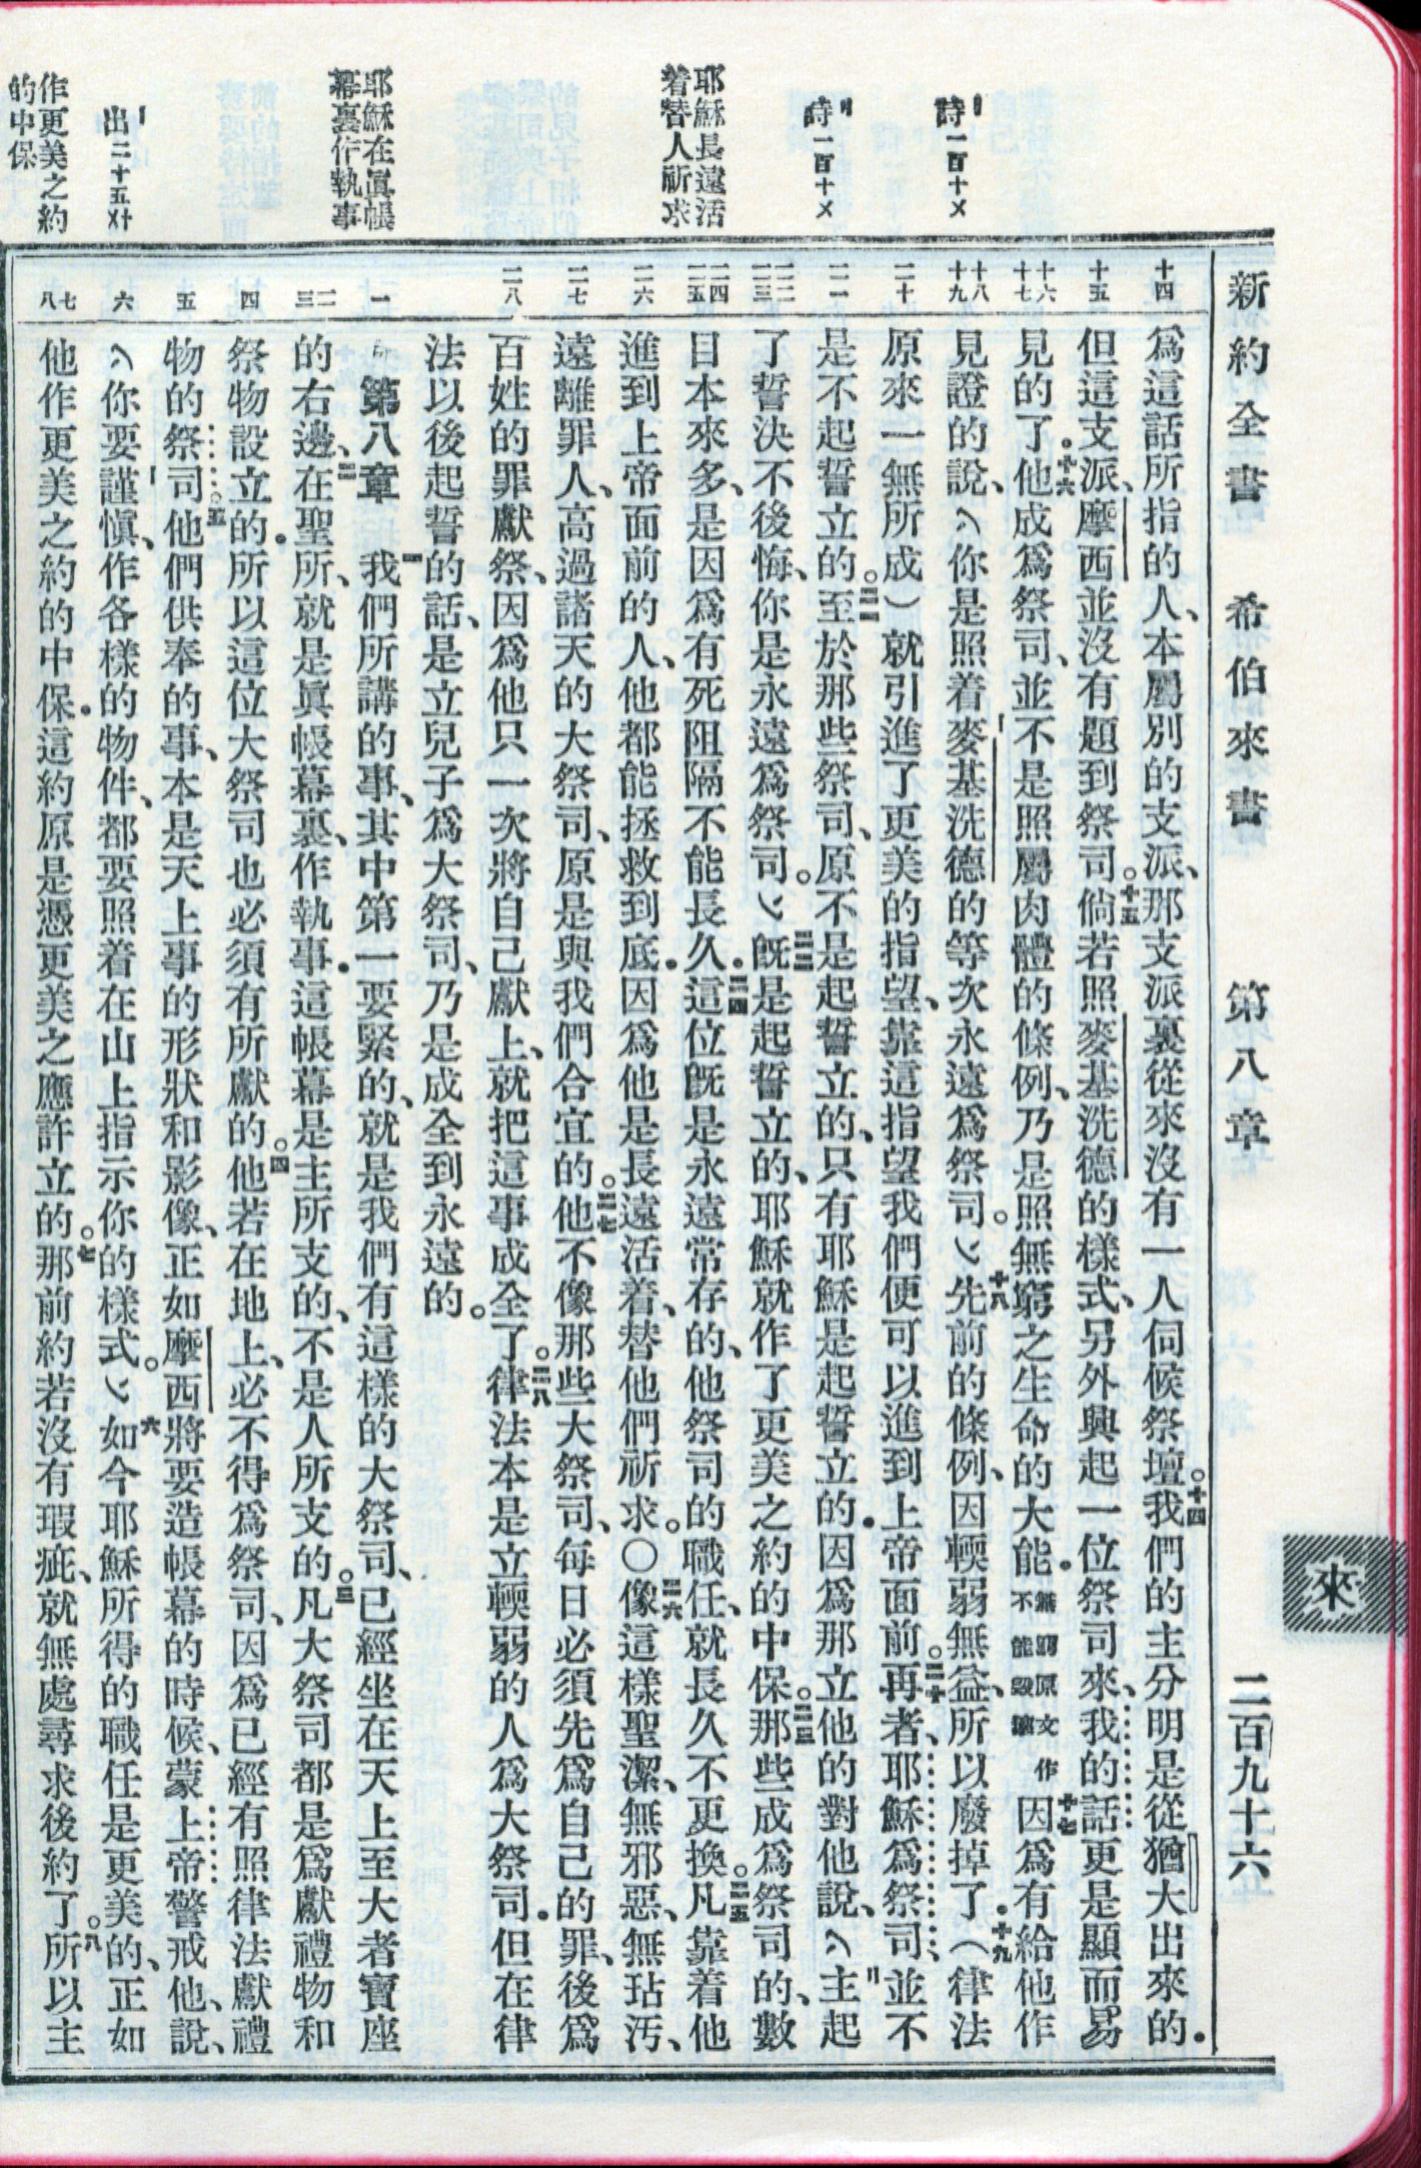 新約全書 希伯來書 第八章 二百九十六
來
詩一百十〤
詩一百十〤
耶穌長遠活
着替人祈求
耶穌在眞帳
幕裏作執事
出二十五〤〸
作更美之約
的中保
十四
十五
十六
十七
十八
十九
二十
二一
二二
二三
二四
二五
二六
二七
二八
一
二
三
四
五
六
七
八
爲這話所指的人、本屬別的支派、那支派裏從來沒有一人伺候祭壇。十四我們的主分明是從猶大出來的．
但這支派、摩西並沒有題到祭司。十五倘若照麥基洗德的樣式、另外興起一位祭司來、我的話更是顯而易
見的了．十六他成爲祭司、並不是照屬肉體的條例、乃是照無窮之生命的大能．無窮原文作不能毀壞十七因爲有給他作
見證的說、〔你是照着麥基洗德的等次永遠爲祭司。〕十八先前的條例、因輭弱無益、所以廢掉了．十九（律法
原來一無所成）就引進了更美的指望、靠這指望我們便可以進到上帝面前。二十再者、耶穌爲祭司、並不
是不起誓立的。二一至於那些祭司、原不是起誓立的、只有耶穌是起誓立的．因爲那立他的對他說、〔主起
了誓決不後悔、你是永遠爲祭司。〕二二旣是起誓立的、耶穌就作了更美之約的中保。二三那些成爲祭司的、數
目本來多、是因爲有死阻隔不能長久．二四這位旣是永遠常存的、他祭司的職任、就長久不更換。二五凡靠着他
進到上帝面前的人、他都能拯救到底．因爲他是長遠活着、替他們祈求。〇二六像這樣聖潔、無邪惡、無玷汚、
遠離罪人、高過諸天的大祭司、原是與我們合宜的。二七他不像那些大祭司、每日必須先爲自己的罪、後爲
百姓的罪獻祭、因爲他只一次將自己獻上、就把這事成全了。二八律法本是立輭弱的人爲大祭司．但在律
法以後起誓的話、是立兒子爲大祭司、乃是成全到永遠的。
第八章 一我們所講的事、其中第一要緊的、就是我們有這樣的大祭司、已經坐在天上至大者寶座
的右邊、二在聖所、就是眞帳幕裏、作執事．這帳幕是主所支的、不是人所支的。三凡大祭司都是爲獻禮物和
祭物設立的．所以這位大祭司也必須有所獻的。四他若在地上、必不得爲祭司、因爲已經有照律法獻禮
物的祭司。五他們供奉的事、本是天上事的形狀和影像、正如摩西將要造帳幕的時候、蒙上帝警戒他、說、
〔你要謹愼、作各樣的物件、都要照着在山上指示你的樣式。〕六如今耶穌所得的職任是更美的、正如
他作更美之約的中保．這約原是憑更美之應許立的。七那前約若沒有瑕疵、就無處尋求後約了。八所以主